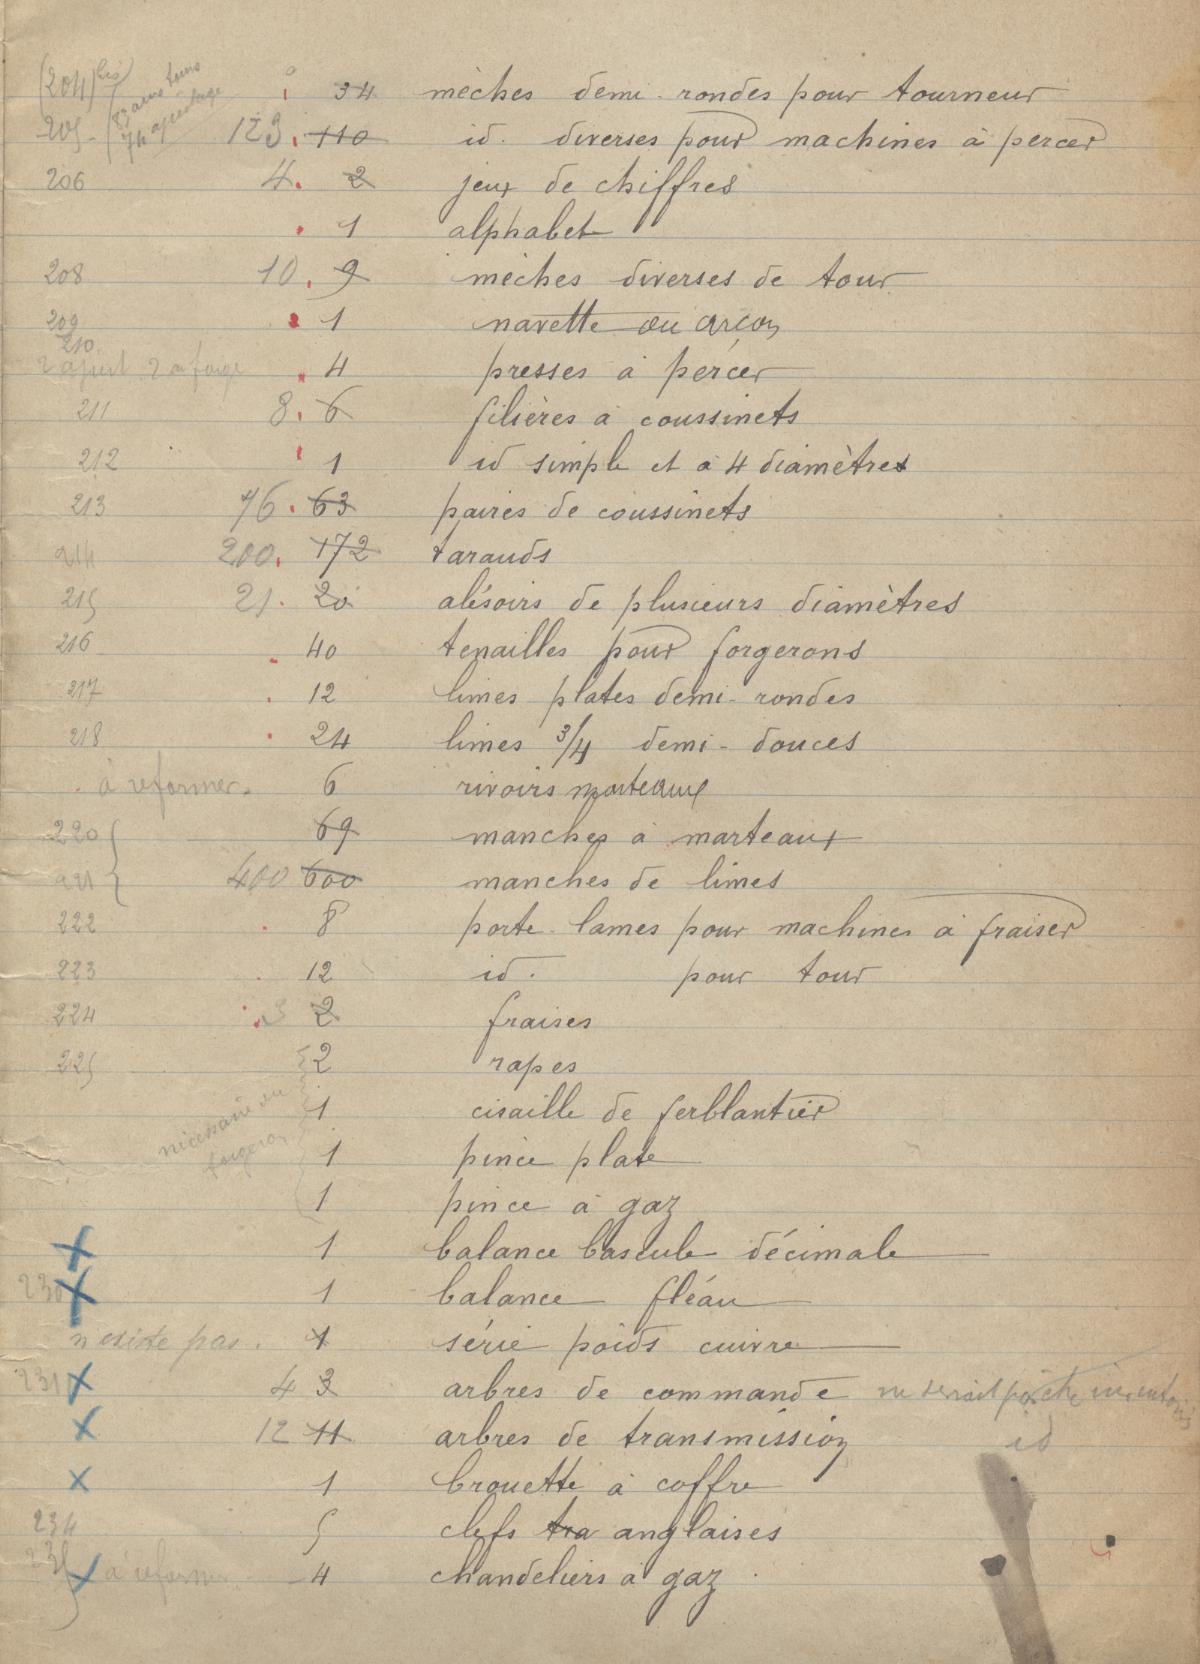 (204) bis 34 mèches demi-rondes pour tourneur
205 123 110 id. diverses pour machines à percer
206 4 2 jeux de chiffres
1 alphabet
208 10 9 mèches diverses de tour
209 1 navette ou arçon
210
2 ajust 2 a forge 4 presses à percer
211 8 6 filières à coussinets
212 1 id simple et à 4 diamètres
213 76 63 paires de coussinets
214 200 172 tarauds
215 21 20 alésoirs de plusieurs diamètres
216 40 tenailles pour forgerons
217 12 limes plates demi-rondes
218 24 limes 3/4 demi-douces
à reformer. 6 rivoirs marteaux
220 69 manches à marteaux
221 400 600 manches de limes
222 8 porte-lames pour machines à fraiser
223 12 id. pour tour
224 3 2 fraises
225 2 rapes
1 cisaille de ferblantier
nécessaire du forgeron 1 pince plate
1 pince à gaz
1 balance bascule décimale
230 1 balance fléau
n'existe pas. 1 série poids cuivre
231 4 3 arbres de commande
12 11 arbres de transmission id
1 brouette à coffre
234 5 clefs tra anglaises
235 à reformer 4 chandeliers à gaz